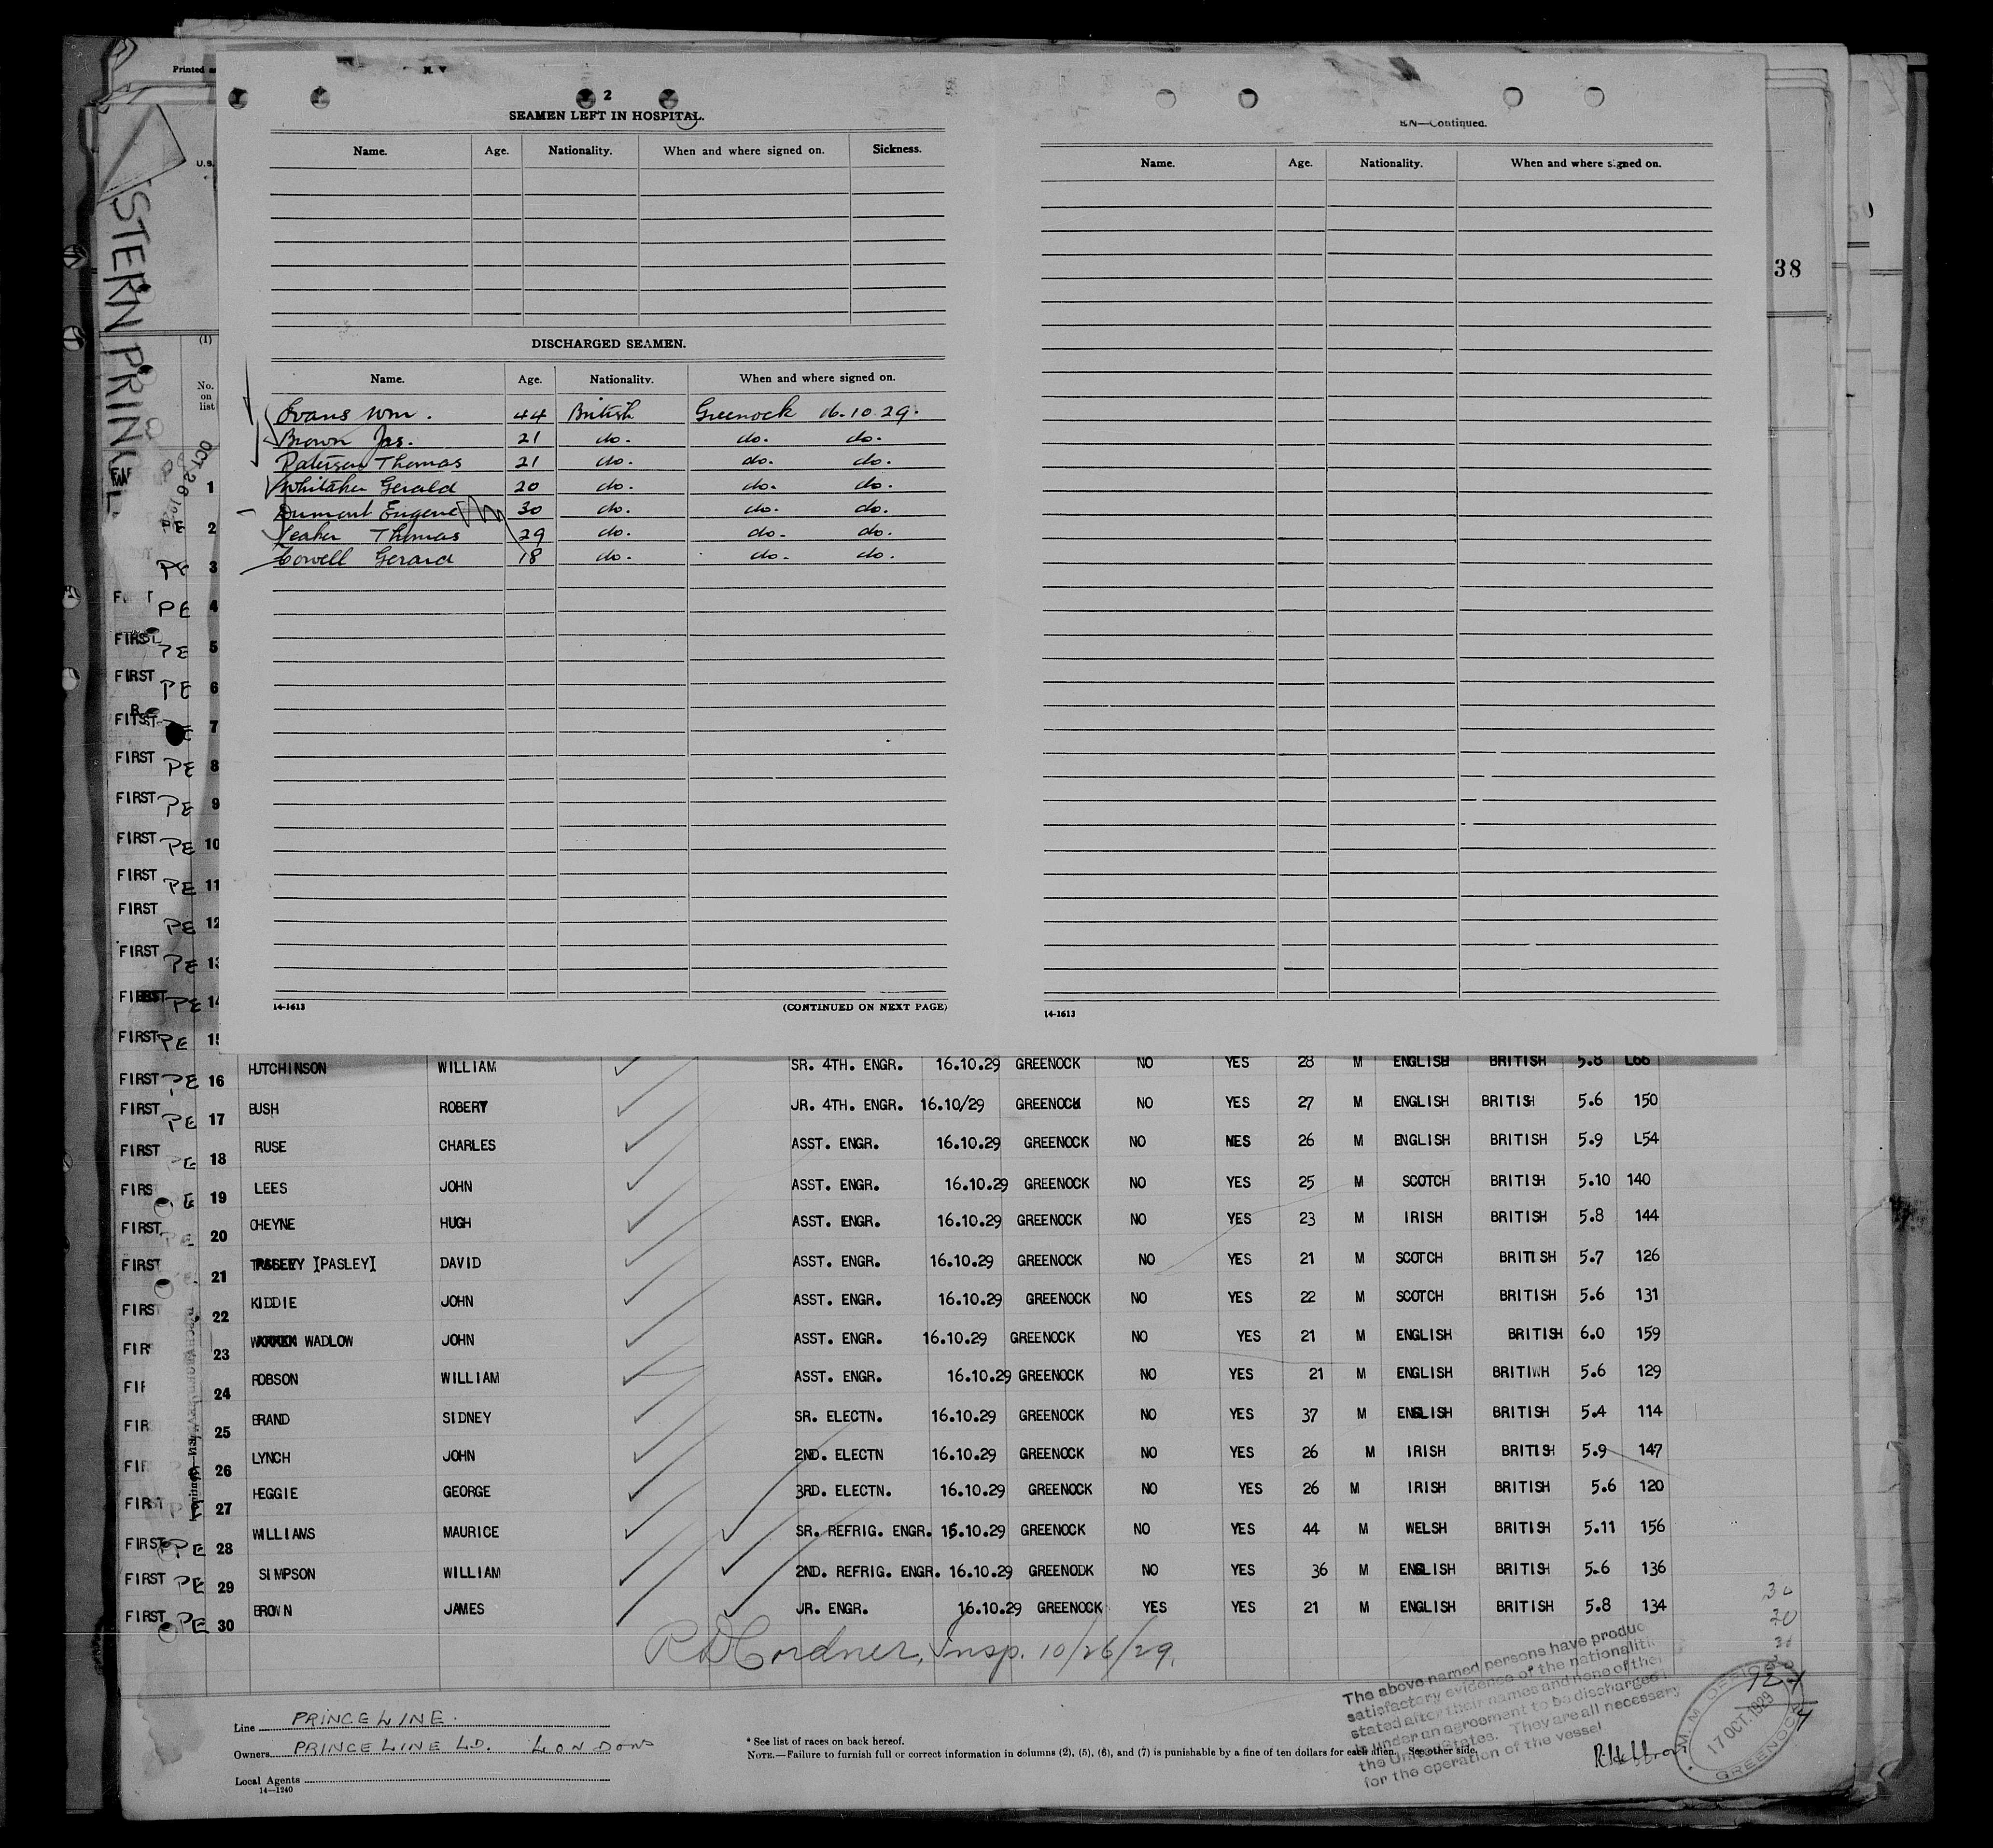 Printed
2
SEAMEN LEFT IN HOSPITAL.
Name. Age. Nationality. When and where signed on. Sickness.
DISCHARGED SEAMEN.
Name. Age. Nationality. When and where signed on.
Evans Wm. 44 British Greenock 16.10.29.
Brown Jas. 21 do. do. do.
Paterson Thomas 21 do. do. do.
Whitaker Gerald 20 do. do. do.
Dumont Eugene 30 do. do. do.
Leaker Thomas 29 do. do. do.
Cowell Gerard 18 do. do. do.
14-1613 (CONTINUED ON NEXT PAGE)
EN—Continued.
Name. Age. Nationality. When and where signed on.
14-1613
38
STERN PRIN
(1)
No. on list
1
PE 2
PE 3
PE 4
FIRST PE 5
FIRST PE 6
FIRST PE 7
FIRST PE 8
FIRST PE 9
FIRST PE 10
FIRST PE 11
FIRST PE 12
FIRST PE 13
FIRST PE 14
FIRST PE 15
FIRST PE 16 HUTCHINSON WILLIAM SR. 4TH. ENGR. 16.10.29 GREENOCK NO YES 28 M ENGLISH BRITISH 5.8 L66
FIRST PE 17 BUSH ROBERT JR. 4TH. ENGR. 16.10/29 GREENOCK NO YES 27 M ENGLISH BRITISH 5.6 150
FIRST PE 18 RUSE CHARLES ASST. ENGR. 16.10.29 GREENOCK NO YES 26 M ENGLISH BRITISH 5.9 L54
FIRS E 19 LEES JOHN ASST. ENGR. 16.10.29 GREENOCK NO YES 25 M SCOTCH BRITISH 5.10 140
FIRST PE 20 CHEYNE HUGH ASST. ENGR. 16.10.29 GREENOCK NO YES 23 M IRISH BRITISH 5.8 144
FIRST 21 [PASLEY] DAVID ASST. ENGR. 16.10.29 GREENOCK NO YES 21 M SCOTCH BRITISH 5.7 126
FIRS 22 KIDDIE JOHN ASST. ENGR. 16.10.29 GREENOCK NO YES 22 M SCOTCH BRITISH 5.6 131
FIR 23 WADLOW JOHN ASST. ENGR. 16.10.29 GREENOCK NO YES 21 M ENGLISH BRITISH 6.0 159
FIR 24 ROBSON WILLIAM ASST. ENGR. 16.10.29 GREENOCK NO YES 21 M ENGLISH BRITIWH 5.6 129
FIR 25 BRAND SIDNEY SR. ELECTN. 16.10.29 GREENOCK NO YES 37 M ENGLISH BRITISH 5.4 114
FIR 26 LYNCH JOHN 2ND. ELECTN 16.10.29 GREENOCK NO YES 26 M IRISH BRITISH 5.9 147
FIRST 27 HEGGIE GEORGE 3RD. ELECTN. 16.10.29 GREENOCK NO YES 26 M IRISH BRITISH 5.6 120
FIRST PE 28 WILLIAMS MAURICE SR. REFRIG. ENGR. 16.10.29 GREENOCK NO YES 44 M WELSH BRITISH 5.11 156
FIRST PE 29 SIMPSON WILLIAM 2ND. REFRIG. ENGR. 16.10.29 GREENODK NO YES 36 M ENGLISH BRITISH 5.6 136
FIRST PE 30 BROWN JAMES JR. ENGR. 16.10.29 GREENOCK YES YES 21 M ENGLISH BRITISH 5.8 134
R D Cordner, Insp. 10/26/29.
The above named persons have produc
satisfactory evidence of the nationaliti
stated after their names and none of the
is under an agreement to be discharged i
the United States. They are all necessary
for the operation of the vessel
M. M. OFFICE
17 OCT. 1929
GREENOCK
Line PRINCE LINE.
Owners PRINCE LINE LD. LONDON
Local Agents
14—1240
* See list of races on back hereof.
NOTE.—Failure to furnish full or correct information in columns (2), (5), (6), and (7) is punishable by a fine of ten dollars for each alien. See other side.